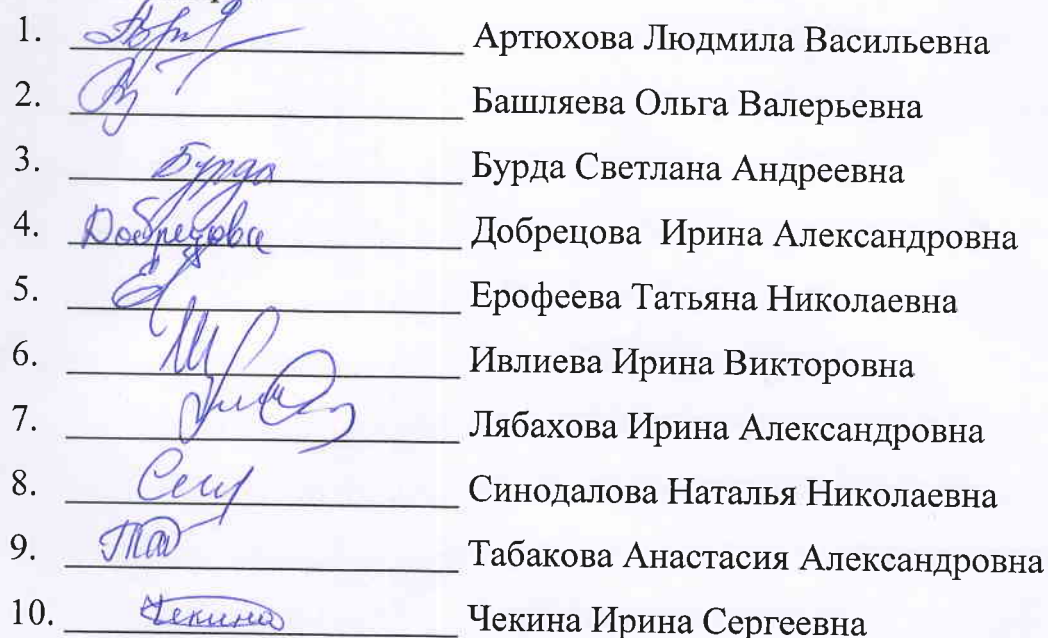 1. Артюхова Людмила Васильевна
2. Башляева Ольга Валерьевна
3. Бурда Бурда Светлана Андреевна
4. Добрецова Добрецова Ирина Александровна
5. Ерофеева Татьяна Николаевна
6. Ивлиева Ирина Викторовна
7. Лябахова Ирина Александровна
8. Синодалова Наталья Николаевна
9. Табакова Анастасия Александровна
10. Чекина Чекина Ирина Сергеевна